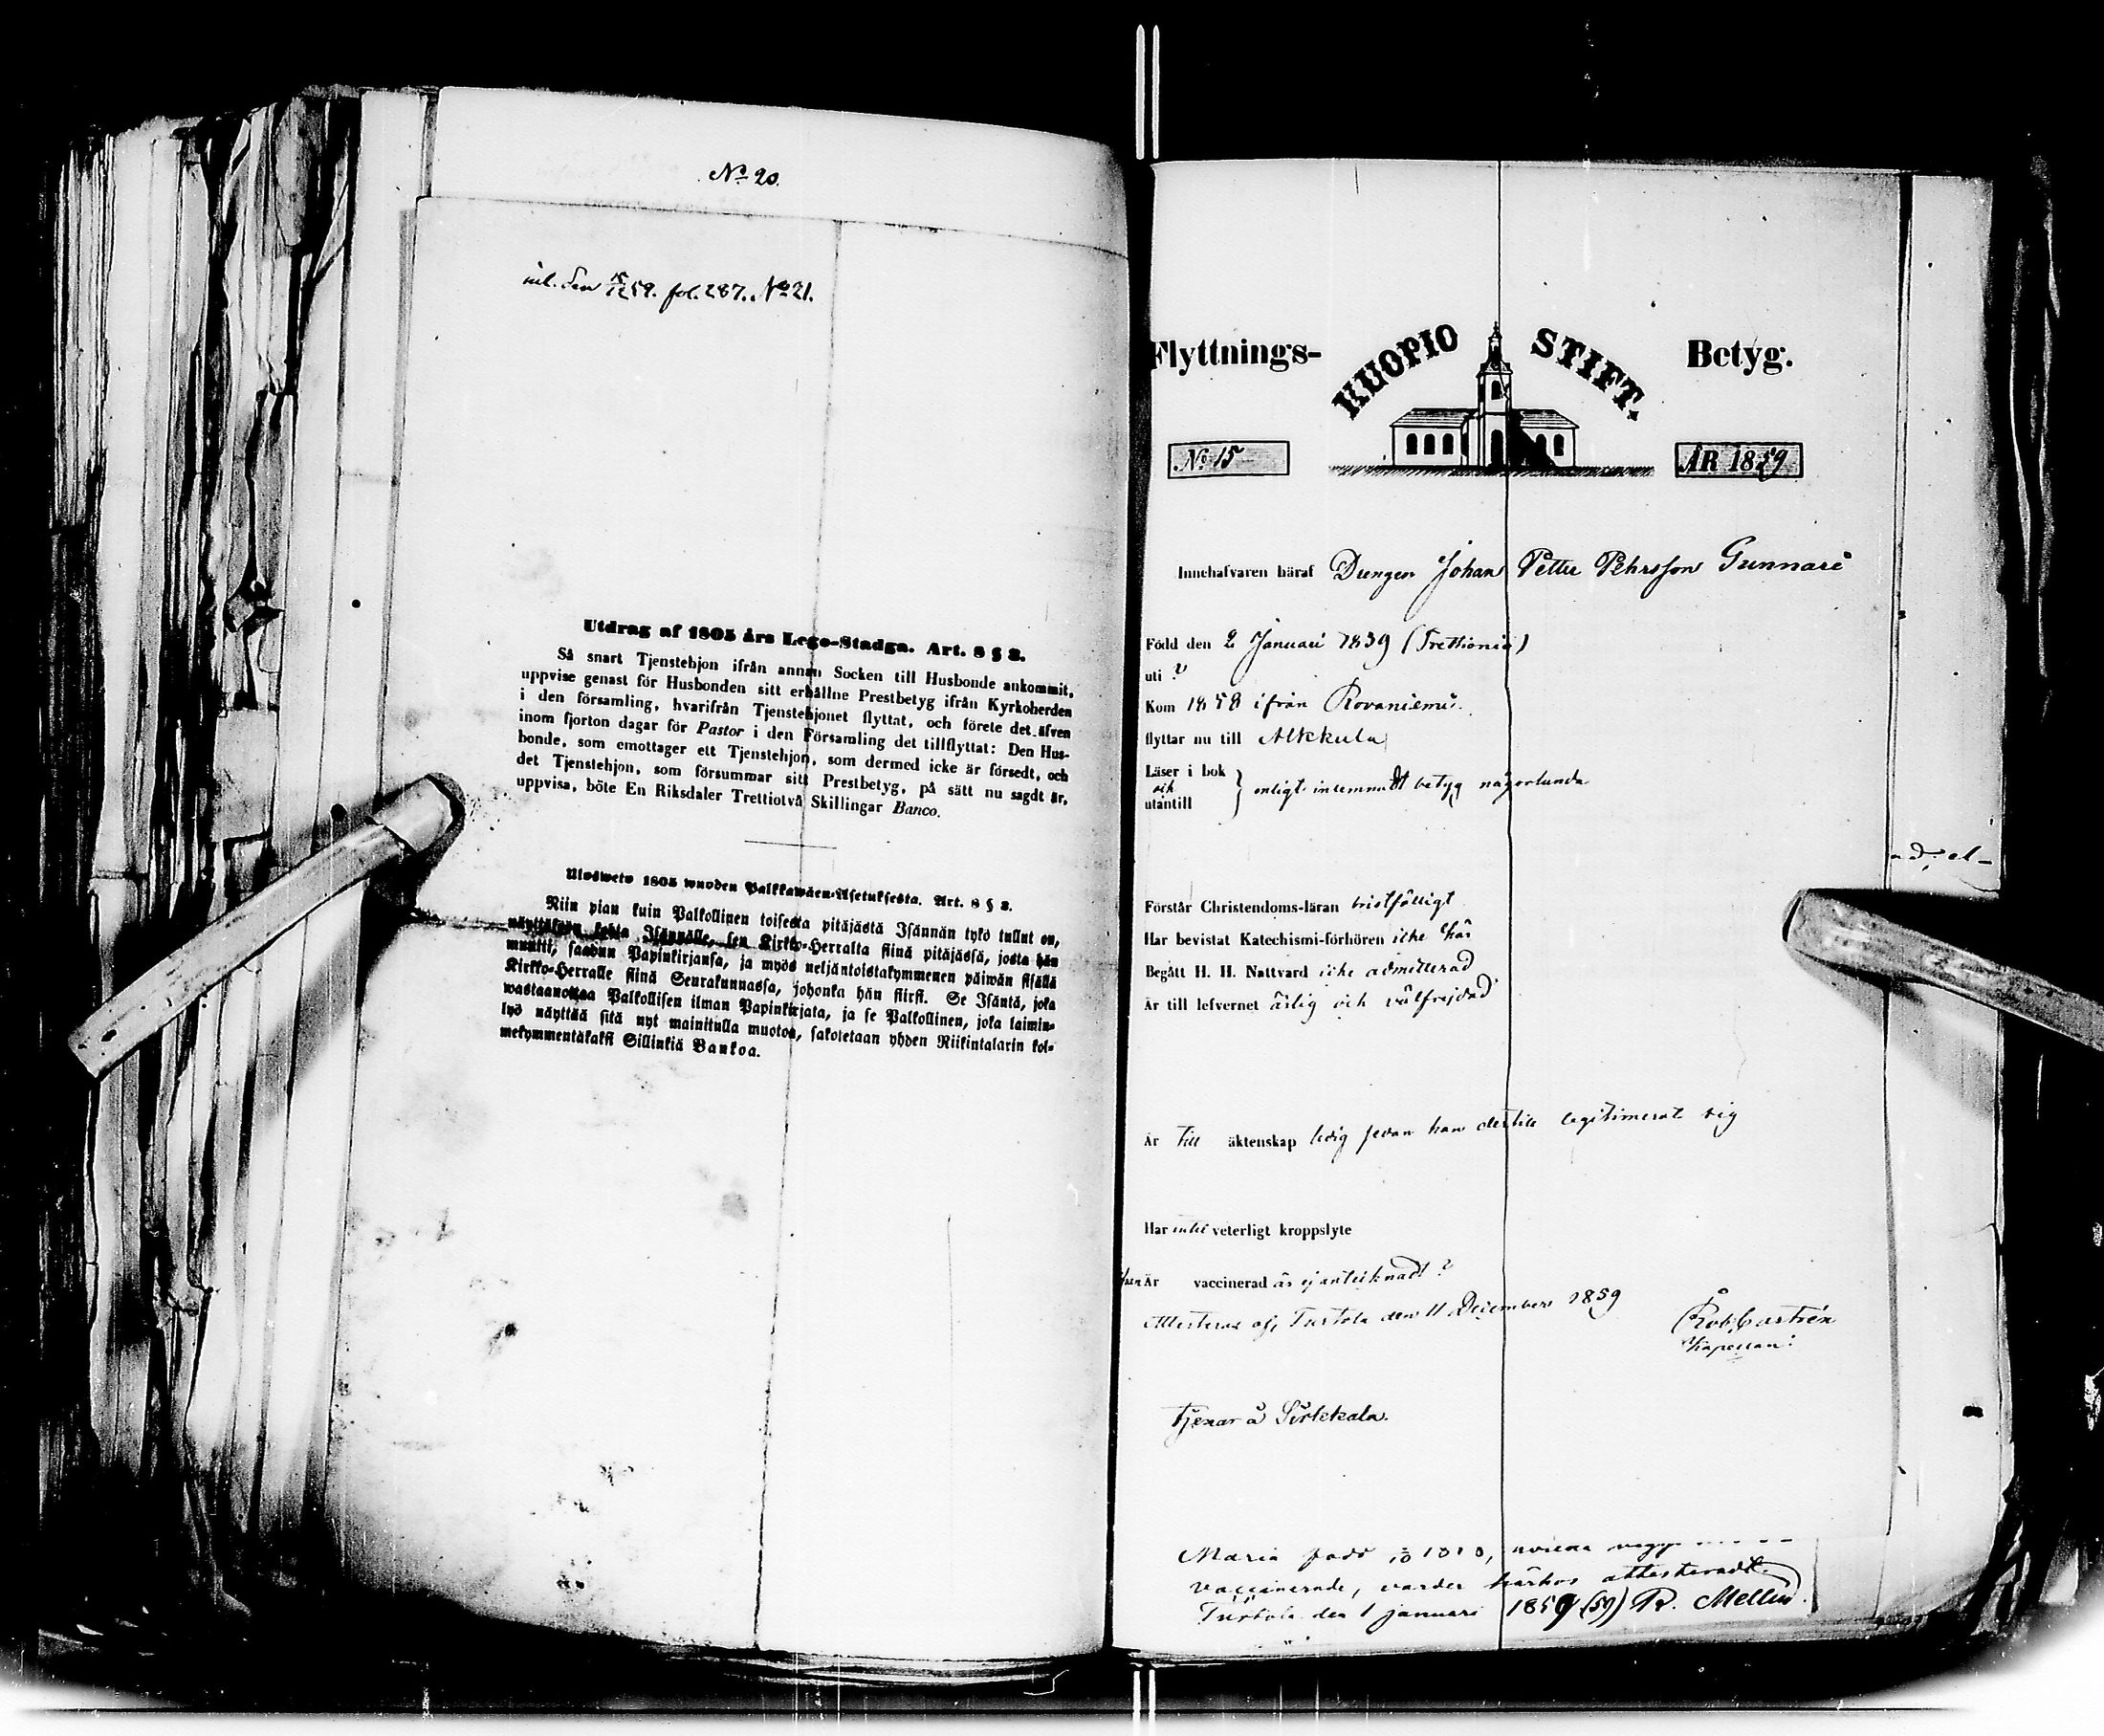 No 20.
inl. den 15/12 59. fol. 287. No 21.
Utdrag af 1805 års Lego-Stadga. Art. 8 § 3.
Så snart Tjenstehjon ifrån annan Socken till Husbonde ankommit,
uppvise genast för Husbonden sitt erhållne Prestbetyg ifrån Kyrkoherden
i den församling, hvarifrån Tjenstehjonet flyttat, och förete det äfven
inom fjorton dagar för Pastor i den Församling det tillflyttat: Den Hus-
bonde, som emottager ett Tjenstehjon, som dermed icke är försedt, och
det Tjenstehjon, som försummar sitt Prestbetyg, på sätt nu sagdt är,
uppvisa, böte En Riksdaler Trettiotvå Skillingar Banco.
Ulosweto 1805 wuoden Palkkawäen-Asetuksesta. Art. 8 § 3.
Niin pian kuin Palkollinen toisesta pitäjästä Isännän tykö tullut on,
näyttäkään kohta Isännälle, sen Kirkko-Herralta siinä pitäjässä, josta hän
muutti, saadun Papinkirjansa, ja myös neljäntoistakymmenen päiwän sisällä
Kirkko-Herralle siinä Seurakunnassa, johonka hän siirsi. Se Isäntä, joka
wastaanottaa Palkollisen ilman Papinkirjata, ja se Palkollinen, joka laimin-
lyö näyttää sitä nyt mainitulla muotoa, sakotetaan yhden Riikintalarin kol-
mekymmentäkaksi Sillinkiä Bankoa.
Flyttnings- KUOPIO STIFT. Betyg.
No 15 ÅR 1859
Innehafvaren häraf Drengen Johan Petter Pehrsson Gunnari
Född den 2 Januari 1839 (Trettionio)
uti ?
Kom 1858 ifrån Rovaniemi.
flyttar nu till Alkkula
Läser i bok
och
utantill } enligt inlemnadt betyg någorlunda
ad. el-
Förstår Christendoms-läran bristfälligt
Har bevistat Katechismi-förhören icke här
Begått H. H. Nattvard icke admitterad
Är till lefvernet ärlig och välfrejdad
Är till äktenskap ledig sedan han dertill legitimerat sig
Har intet veterligt kroppslyte
Är vaccinerad är ej anteiknadt ?
Attesterar af, Turtola den 11 December 1859
Rob. Castrén
Kapellan.
Tjenar å Sirkkala.
Maria född 1818,
vaccinerade, varder härhos attesteradt.
Turtola den 1 januari 1859 (59) R. Mellin